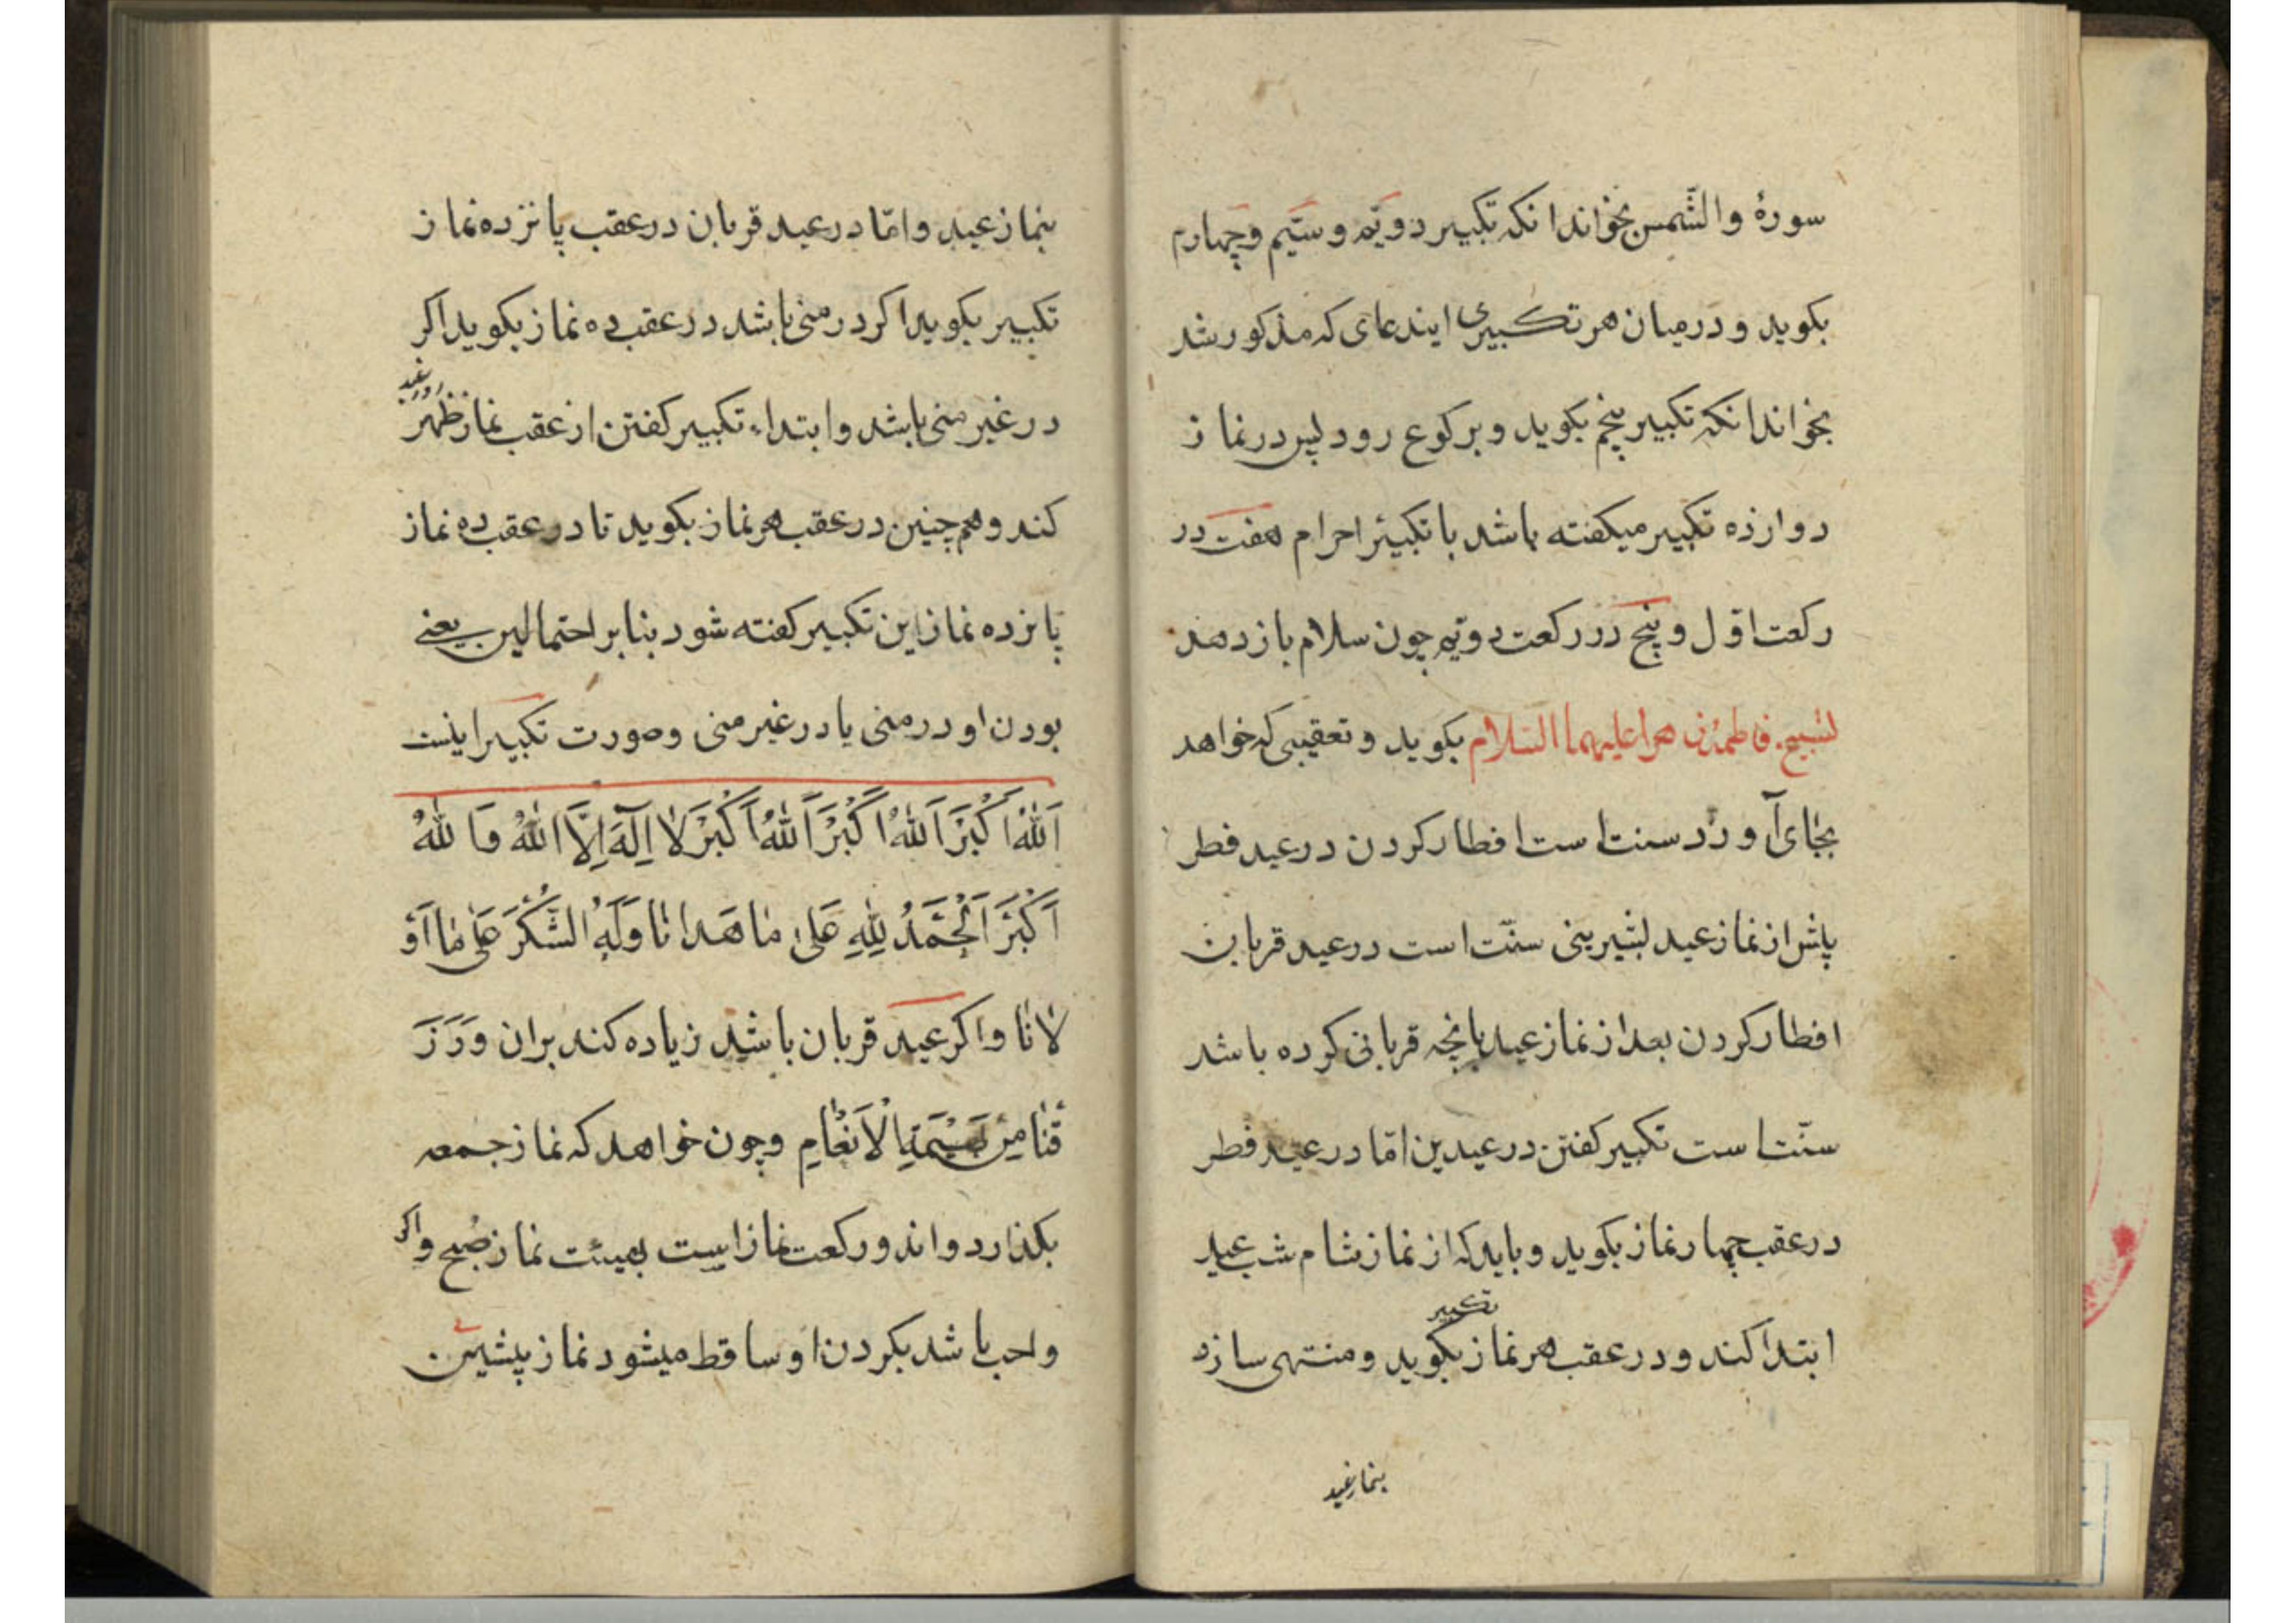 سورهٔ والشّمس بخواند انکه تکبیر دویّم و سیّم و چهارم
بکوید و درمیان هر تکبیری ایندعای که مذکور شد
بخواند انکه تکبیر پنجم بکوید و برکوع رود پس در نماز
دوازده تکبیر میکفته باشد با تکبیر احرام هفت در
رکعت اوّل و پنج در رکعت دویّم چون سلام باز دهد
تسبیح فاطمه زهرا علیهما السّلام بکوید و تعقیبی که خواهد
بجای آورد سنت است افطار کردن در عید فطر
پاش از نماز عید بشیرینی سنّت است در عید قربان
افطار کردن بعد از نماز عید بانچه قربانی کرده باشد
سنّت است تکبیر کفتن در عیدین امّا در عید فطر
در عقب چهار نماز بکوید و باید که از نماز شام شب عید
ابتدا کند و در عقب هر نماز تکبیر بکوید و منتهی سازد
بنماز عید
بنماز عید و امّا در عید قربان در عقب پانزده نماز
تکبیر بکوید اکر در منی باشد در عقب ده نماز بکوید اکر
در غیر منی باشد و ابتداء تکبیر کفتن از عقب نماز ظهر روز عید
کند و هم چنین در عقب هر نماز بکوید تا در عقب ده نماز
پانزده نماز این تکبیر کفته شود بنابر احتمالین یعنے
بودن او در منی یا در غیر منی و صورت تکبیر اینست
اَللهُ اَكْبَرَ اَللهُ اَكْبَرَ اَللهُ اَكْبَرَ لا اِلٰهَ اِلَّا اللهُ وَاللهُ
اَكْبَرَ اَلْحَمْدُ لِلّٰهِ عَلىٰ مٰا هَدٰانٰا وَلَهُ الشُّكْرَ عَلىٰ مٰا اَوْ
لانٰا و اکر عید قربان باشد زیاده کند بران وَرَزَ
قَنٰا مِنْ بَهيمَةِ الْاَنْعٰامِ و چون خواهد که نماز جمعه
بکذارد و اندو رکعت نماز است بهیئت نماز صبح و اکر
واجب باشد بکردن او ساقط میشود نماز پیشین